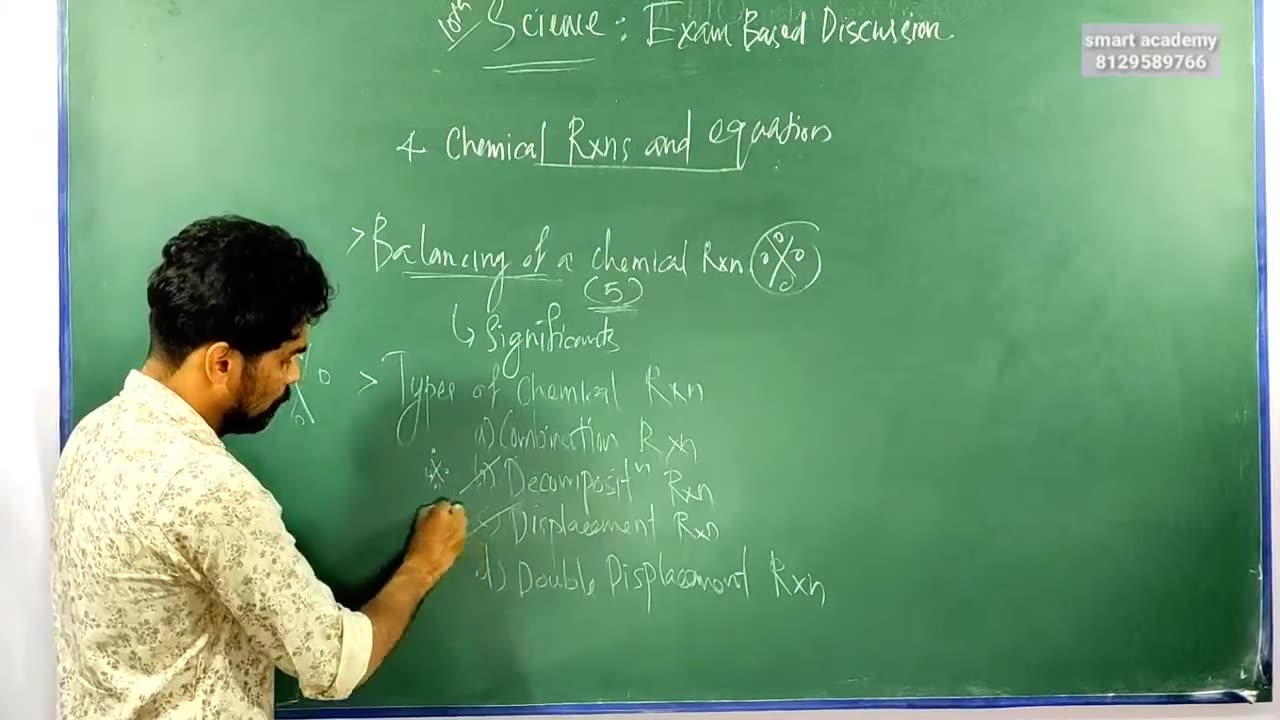 10th Science: Exam Based Discussion
smart academy
8129589766
Chemical Rxns and equations
> Balancing of a chemical Rxn
(5)
↳ Significants
> Types of Chemical Rxn
a) Combination Rxn
b) Decompositⁿ Rxn
c) Displacement Rxn
d) Double Displacement Rxn